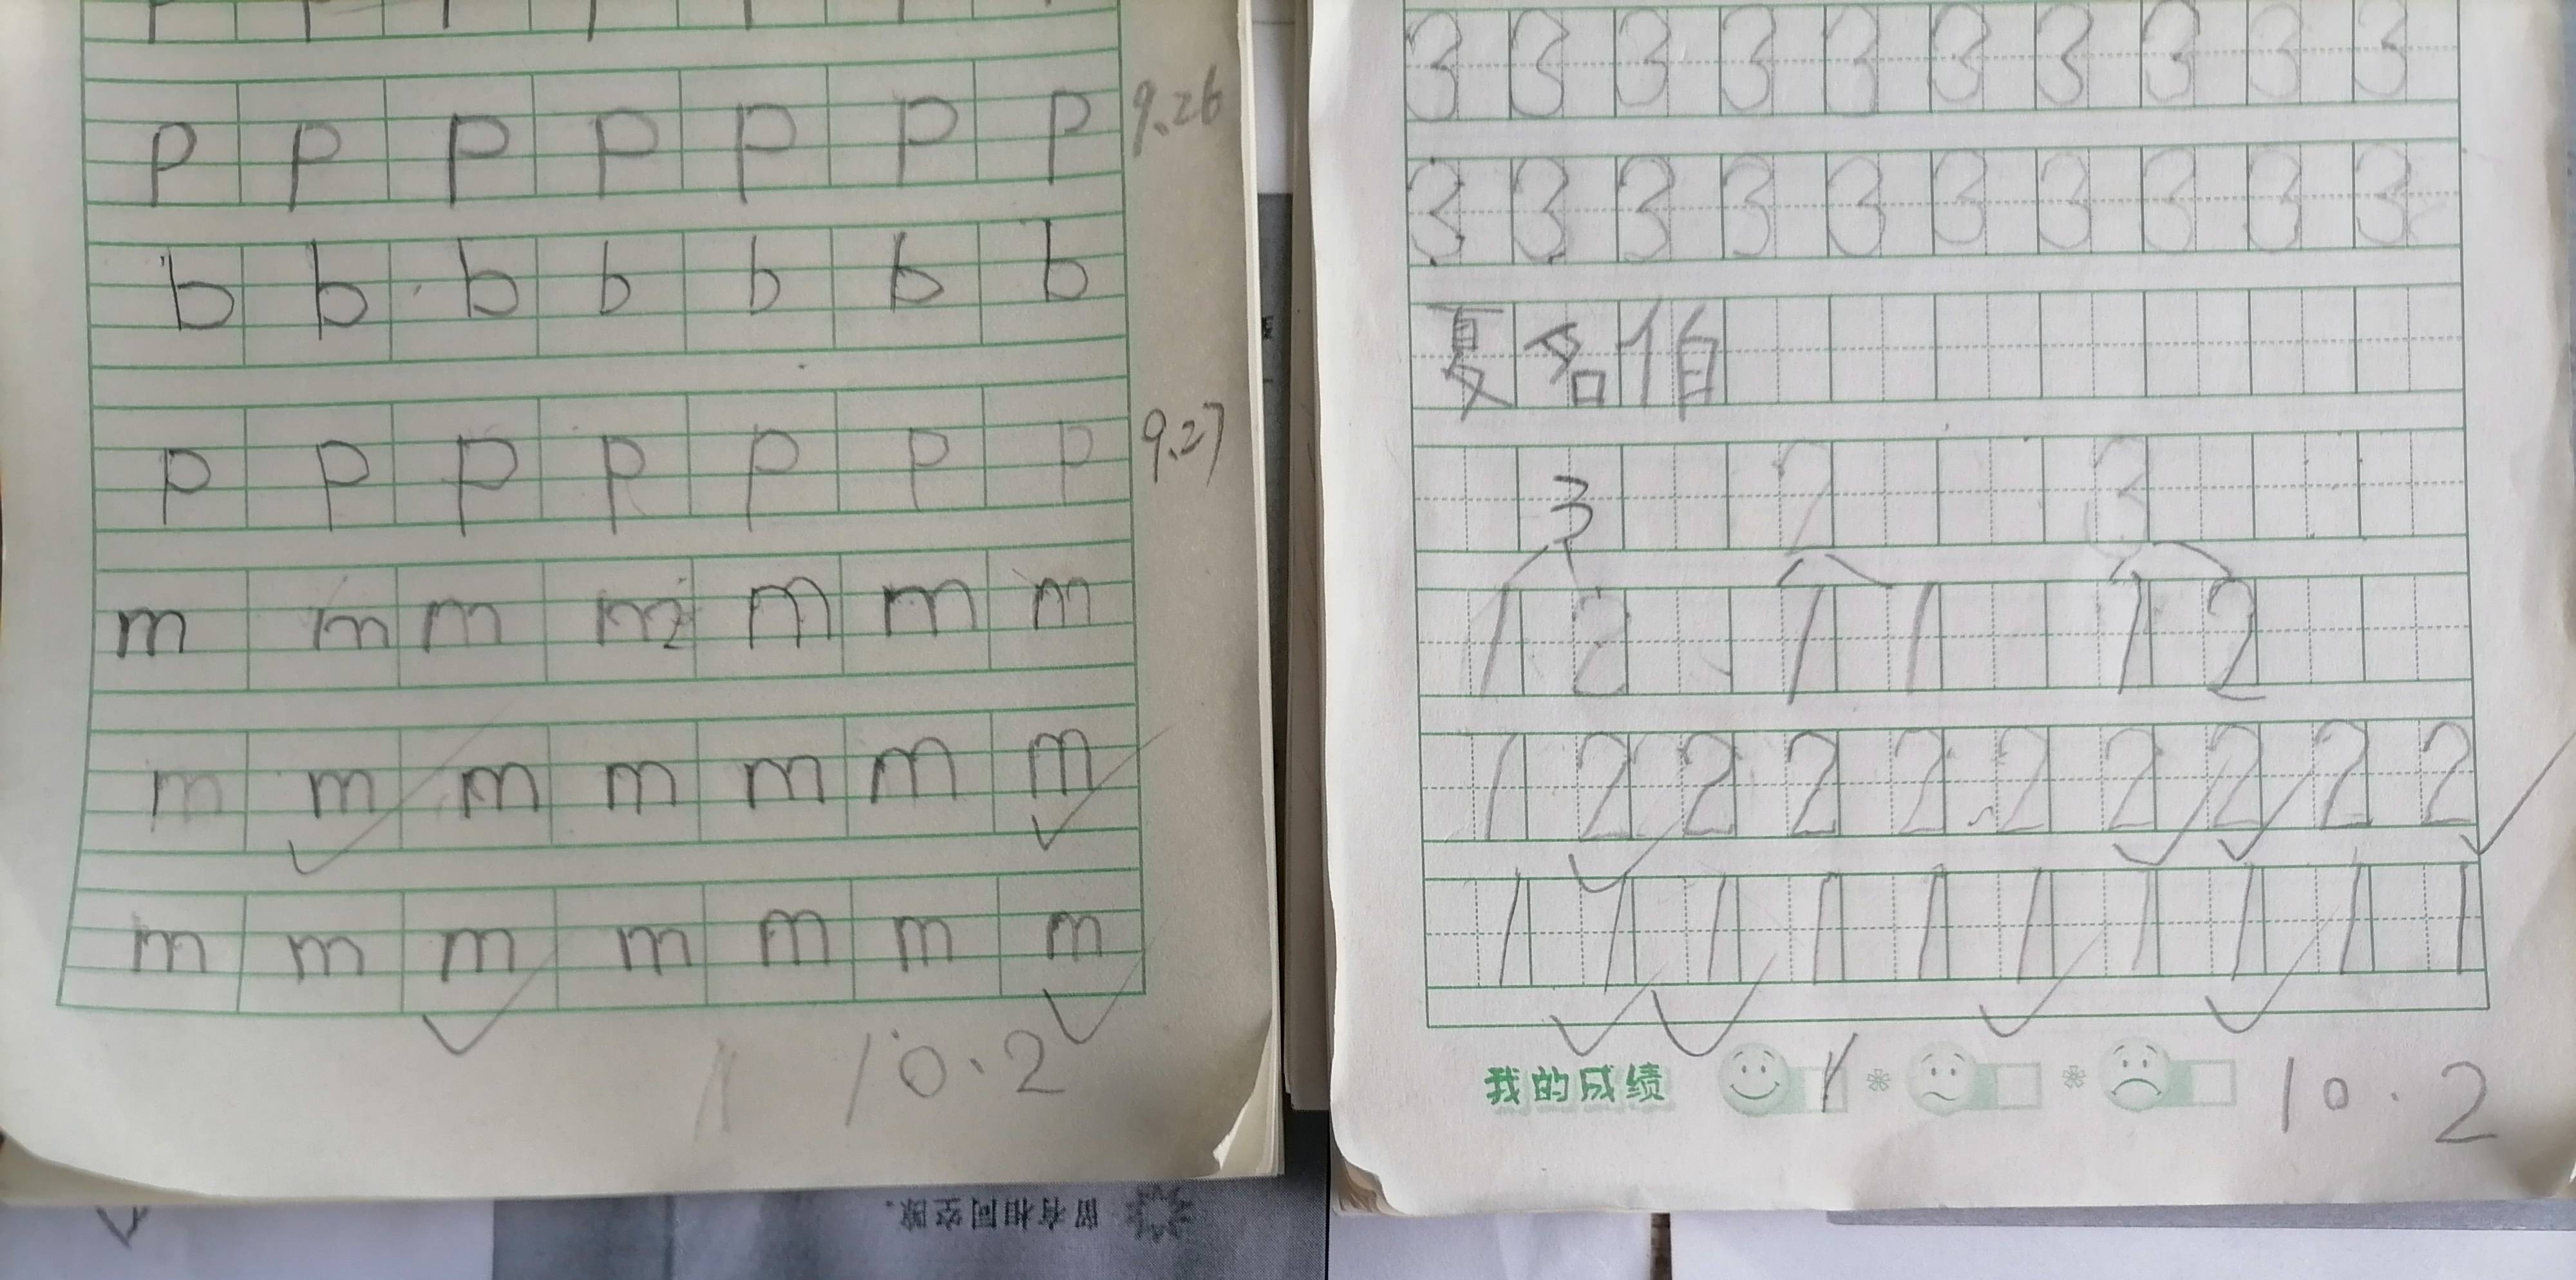 p p p p p p p 9.26
b b b b b b b
p p p p p p p 9.27
m m m m m m m
m m m m m m m
m m m m m m m
10.2
3 3 3 3 3 3 3 3 3 3
3 3 3 3 3 3 3 3 3 3
夏名伯
3 2 3
1 2 1 1 1 2
1 2 2 2 2 2 2 2 2 2
1 1 1 1 1 1 1 1 1 1
我的成绩 10.2
留有相同空隙。